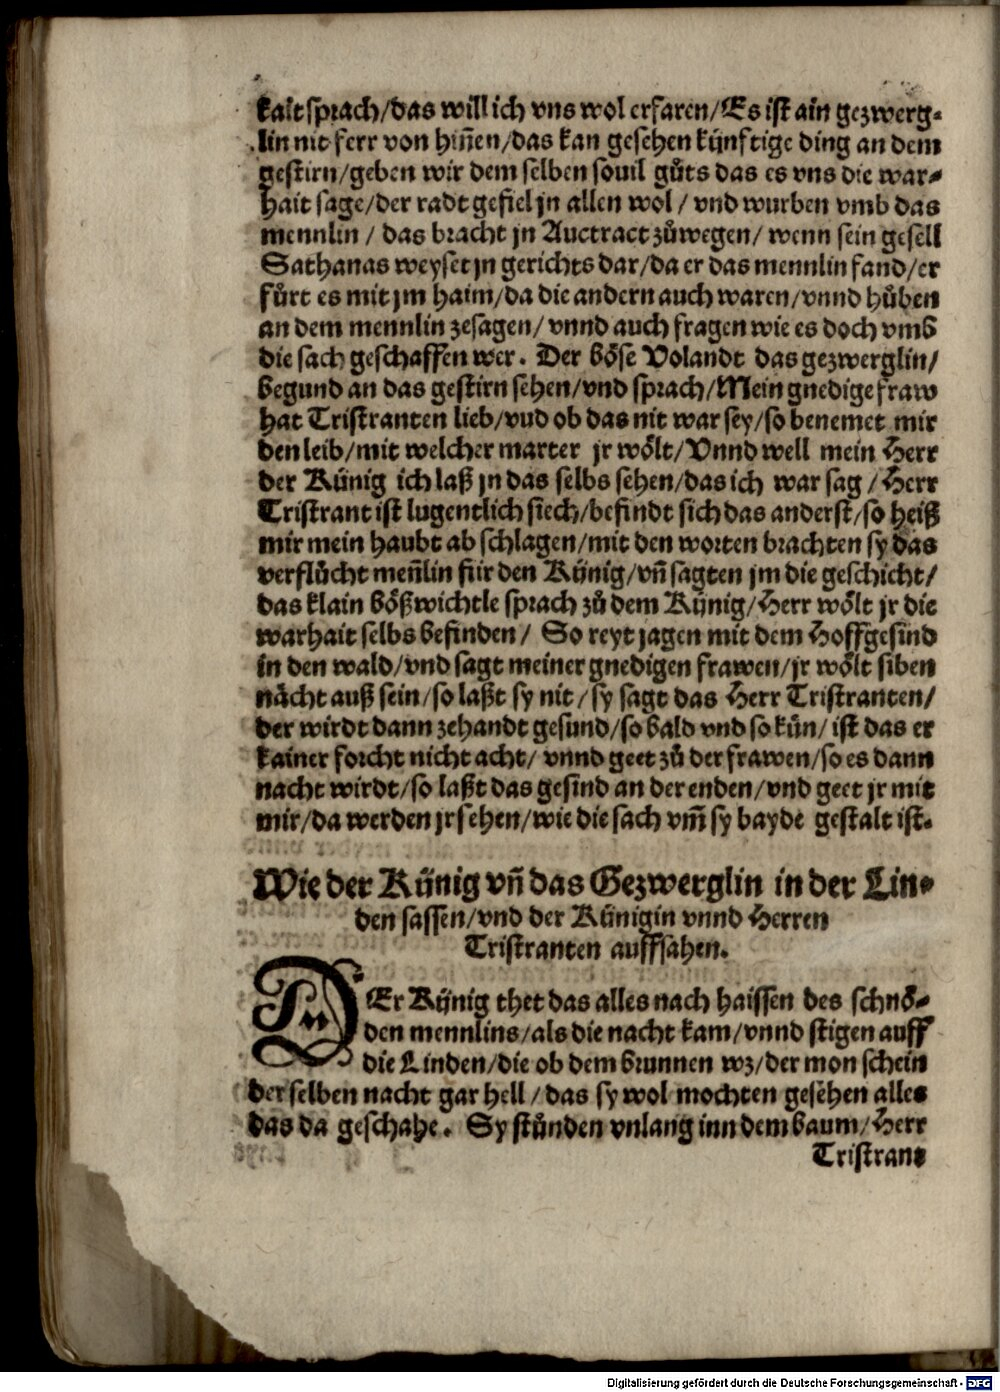 kait sprach/das will ich vns wol erfaren/Es ist ain gezwerg-
lin nit ferr von hiñen/das kan gesehen künftige ding an dem
gestirn/geben wir dem selben souil gůts das es vns die war-
hait sage/der radt gefiel jn allen wol/ vnd wurben vmb das
mennlin / das bracht jn Auctract zůwegen/ wenn sein gesell
Sathanas weyset jn gerichts dar/da er das mennlin fand/er
fůrt es mit jm haim/da die andern auch waren/vnnd hůben
an dem mennlin zesagen/vnnd auch fragen wie es doch vmb
die sach geschaffen wer. Der böse Volandt das gezwerglin/
begund an das gestirn sehen/vnd sprach/Mein gnedige fraw
hat Tristranten lieb/vud ob das nit war sey/so benemet mir
den leib/mit welcher marter jr wölt/Vnnd well mein Herr
der Künig ich laß jn das selbs sehen/das ich war sag/Herr
Tristrant ist lugentlich siech/befindt sich das anderst/so heiß
mir mein haubt ab schlagen/mit den worten brachten sy das
verflůcht meñlin für den Künig/vñ sagten jm die geschicht/
das klain bößwichtle sprach zů dem Künig/Herr wölt jr die
warhait selbs befinden/ So reyt jagen mit dem Hoffgesind
in den wald/vnd sagt meiner gnedigen frawen/jr wölt siben
nächt auß sein/so laßt sy nit/sy sagt das Herr Tristranten/
der wirdt dann zehandt gesund/so bald vnd so kün/ist das er
kainer forcht nicht acht/ vnnd geet zů der frawen/so es dann
nacht wirdt/so laßt das gesind an der enden/vnd geet jr mit
mir/da werden jr sehen/wie die sach vm̃ sy bayde gestalt ist.
Wie der Künig vñ das Gezwerglin in der Lin-
den sassen/vnd der Künigin vnnd Herren
Tristranten auffsahen.
DEr Künig thet das alles nach haissen des schnö-
den mennlins/als die nacht kam/vnnd stigen auff
die Linden/die ob dem brunnen wz/der mon schein
der selben nacht gar hell/das sy wol mochten gesehen alles
das da geschahe. Sy stůnden vnlang inn dem baum/Herr
Tristrant
Digitalisierung gefördert durch die Deutsche Forschungsgemeinschaft - DFG